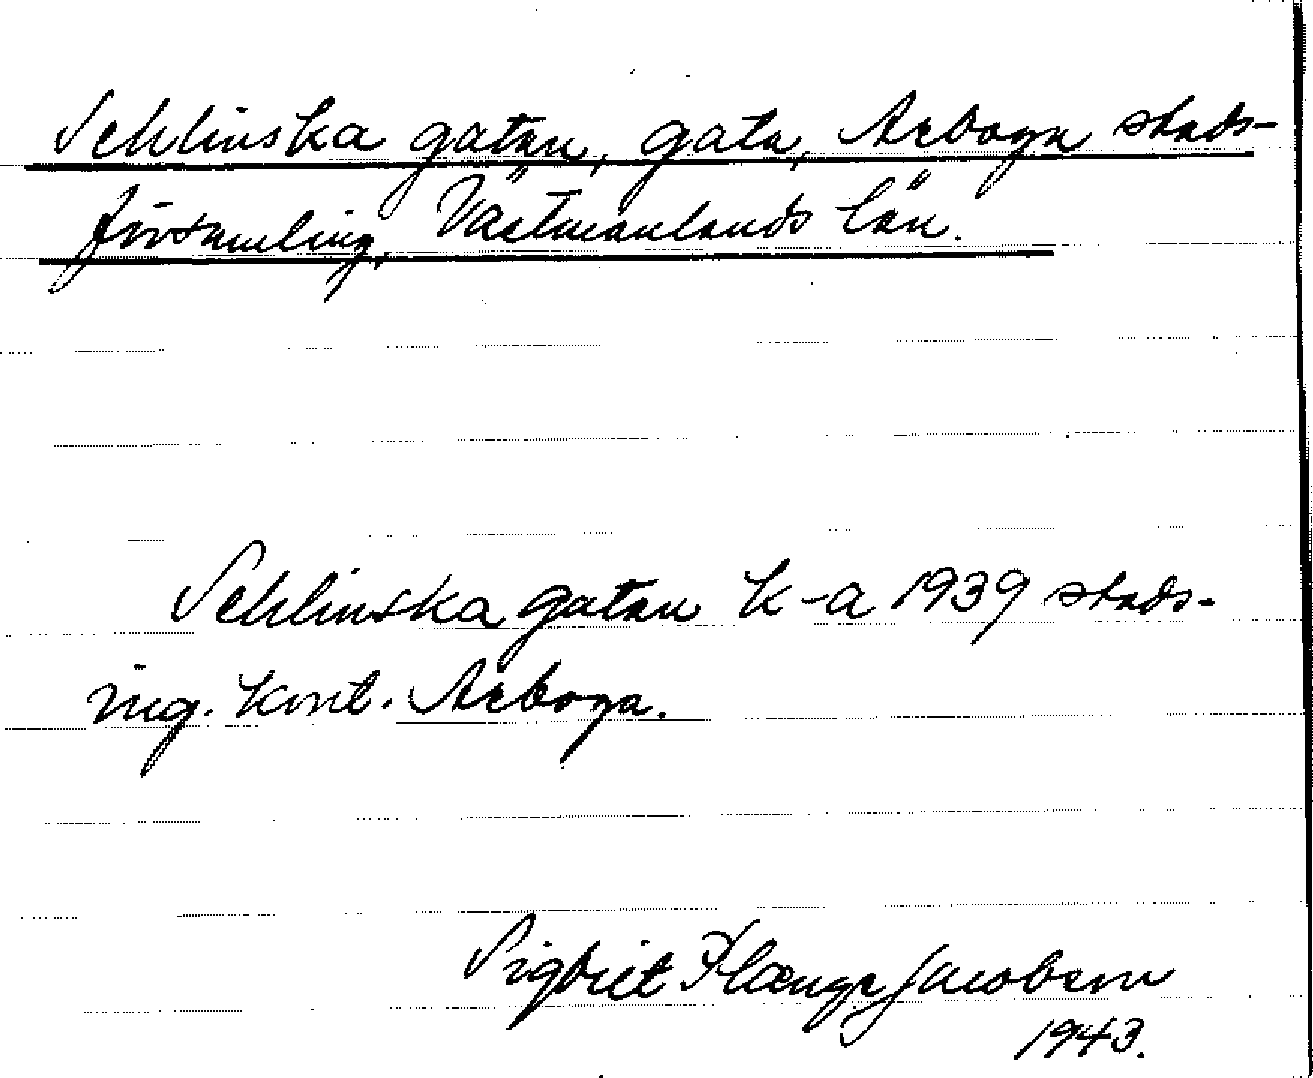 Sehlinska gatan, gata, Arboga stads-
församling, Västmanlands län.
Sehlinska gatan k-a 1939 stads-
ing. kont. Arboga.
Sigbrit Plænge Jacobson
1943.